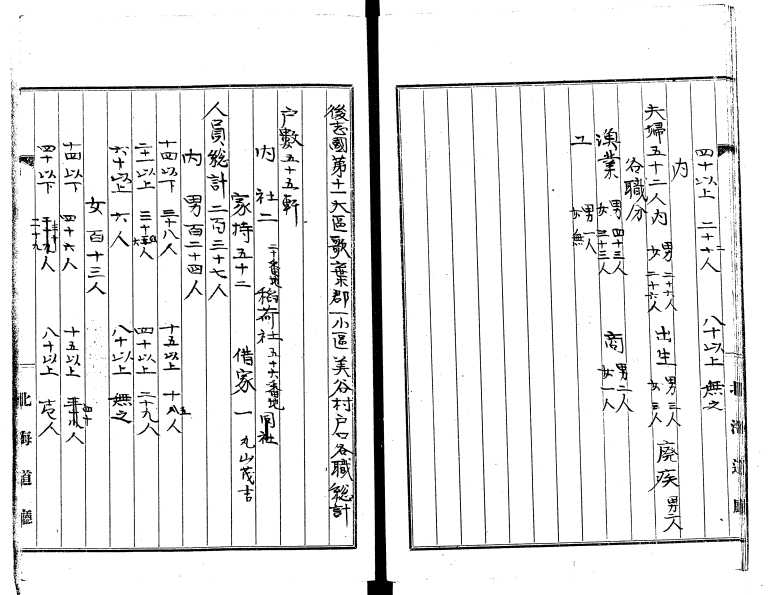 後志國第十一大區歌棄郡一小區美谷村戸口各職総計
户數五十五軒
内 社二 二十番地 稲荷社 五十六番地 同社
家持五十二 借家一 丸山茂吉
人員総計二百三十七人
内 男百二十四人
十四以下 三十八人 十五以上 十八人
二十一以上 三十五人 四十以上 二十九人
六十以上 六人 八十以上 無之
女百十三人
十四以下 四十六人 十五以上 十八人
四十以下 二十九人 八十以上 壱人
北海道廳
四十以上 二十六人 八十以上 無之
内
夫婦五十二人内 男二十六人 女二十六人 出生 男三人 女三人 廃疾 男二人
各職分
漁業 男四十三人 女三十三人 商 男二人 女一人
工 男一人 女無
北海道廳